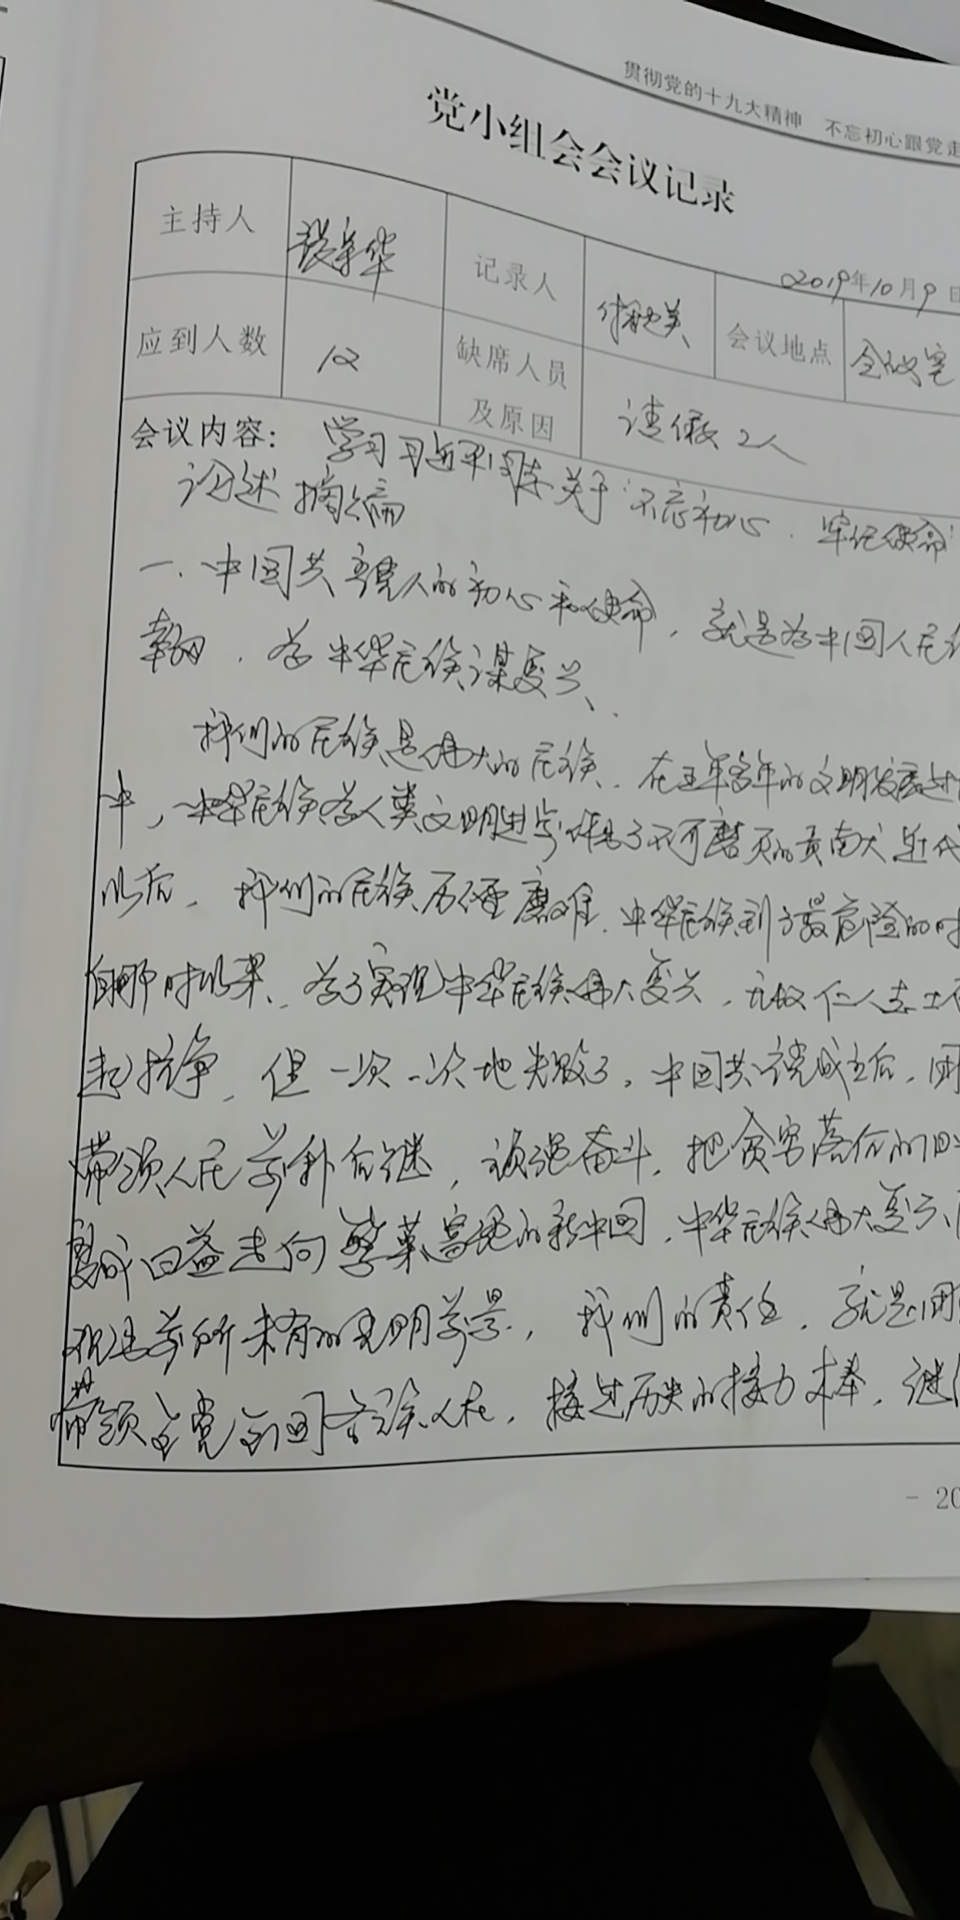 贯彻党的十九大精神 不忘初心跟党走
党小组会会议记录
2019年10月9日
主持人 记录人 会议地点 会议室
应到人数 12 缺席人员及原因 请假2人
会议内容: 学习习近平同志关于“不忘初心、牢记使命”
论述摘编
一、中国共产党人的初心和使命,就是为中国人民
幸福,为中华民族谋复兴、
我们的民族是伟大的民族、在五千多年的文明发展
中,中华民族为人类文明进步作出了不可磨灭的贡献 近代
以后,我们的民族历经磨难、中华民族到了最危险的时
自那时以来、为了实现中华民族伟大复兴,无数仁人志士
起抗争,但一次一次地失败了,中国共产党成立后,团
带领人民前仆后继,顽强奋斗,把贫穷落后的旧
变成日益走向繁荣富强的新中国,中华民族伟大复兴
前所未有的光明前景,我们的责任,就是团
带领全党全国各族人民,接过历史的接力棒,继
- 20